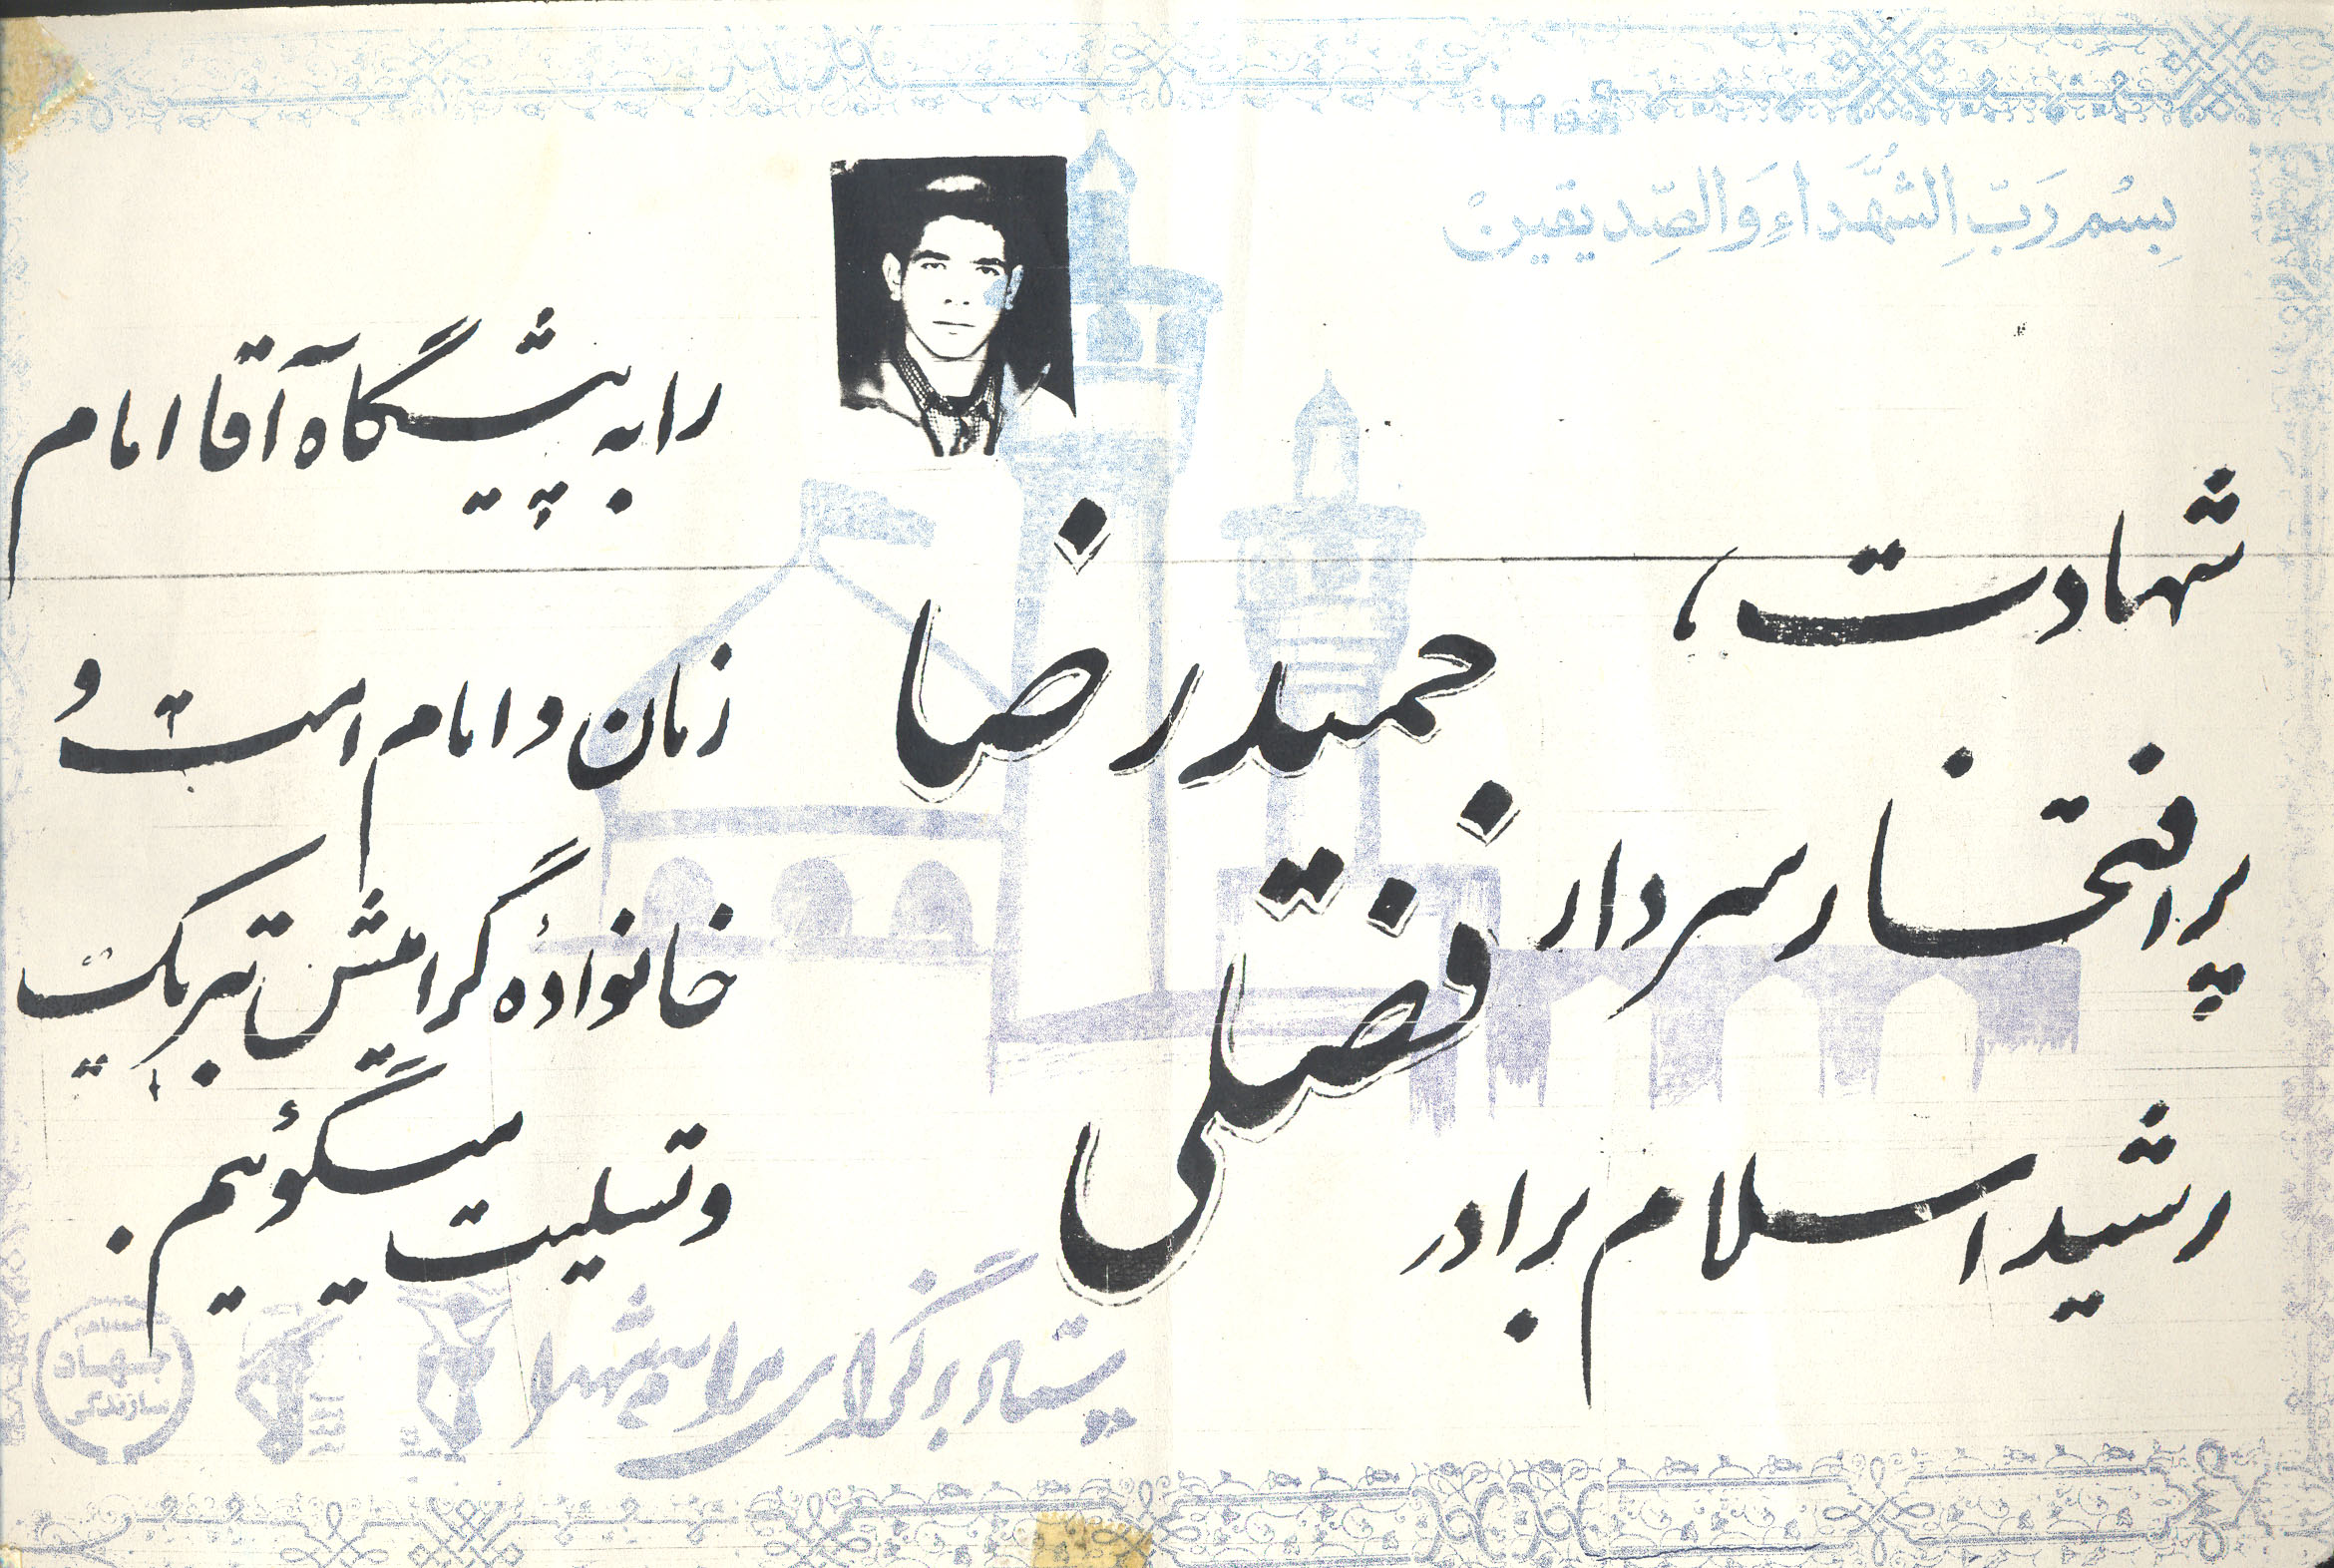 بِسْمِ رَبِّ الشُّهَداءِ وَالصِّدیقینْ
شهادت،
پرافتخار سردار
رشید اسلام برادر
حمیدرضا
فضلی
را به پیشگاه آقا امام
زمان و امام امت و
خانوادهٔ گرامیش تبریک
و تسلیت میگوئیم.
ستاد برگزاری مراسم شهدا
جهاد
سازندگی